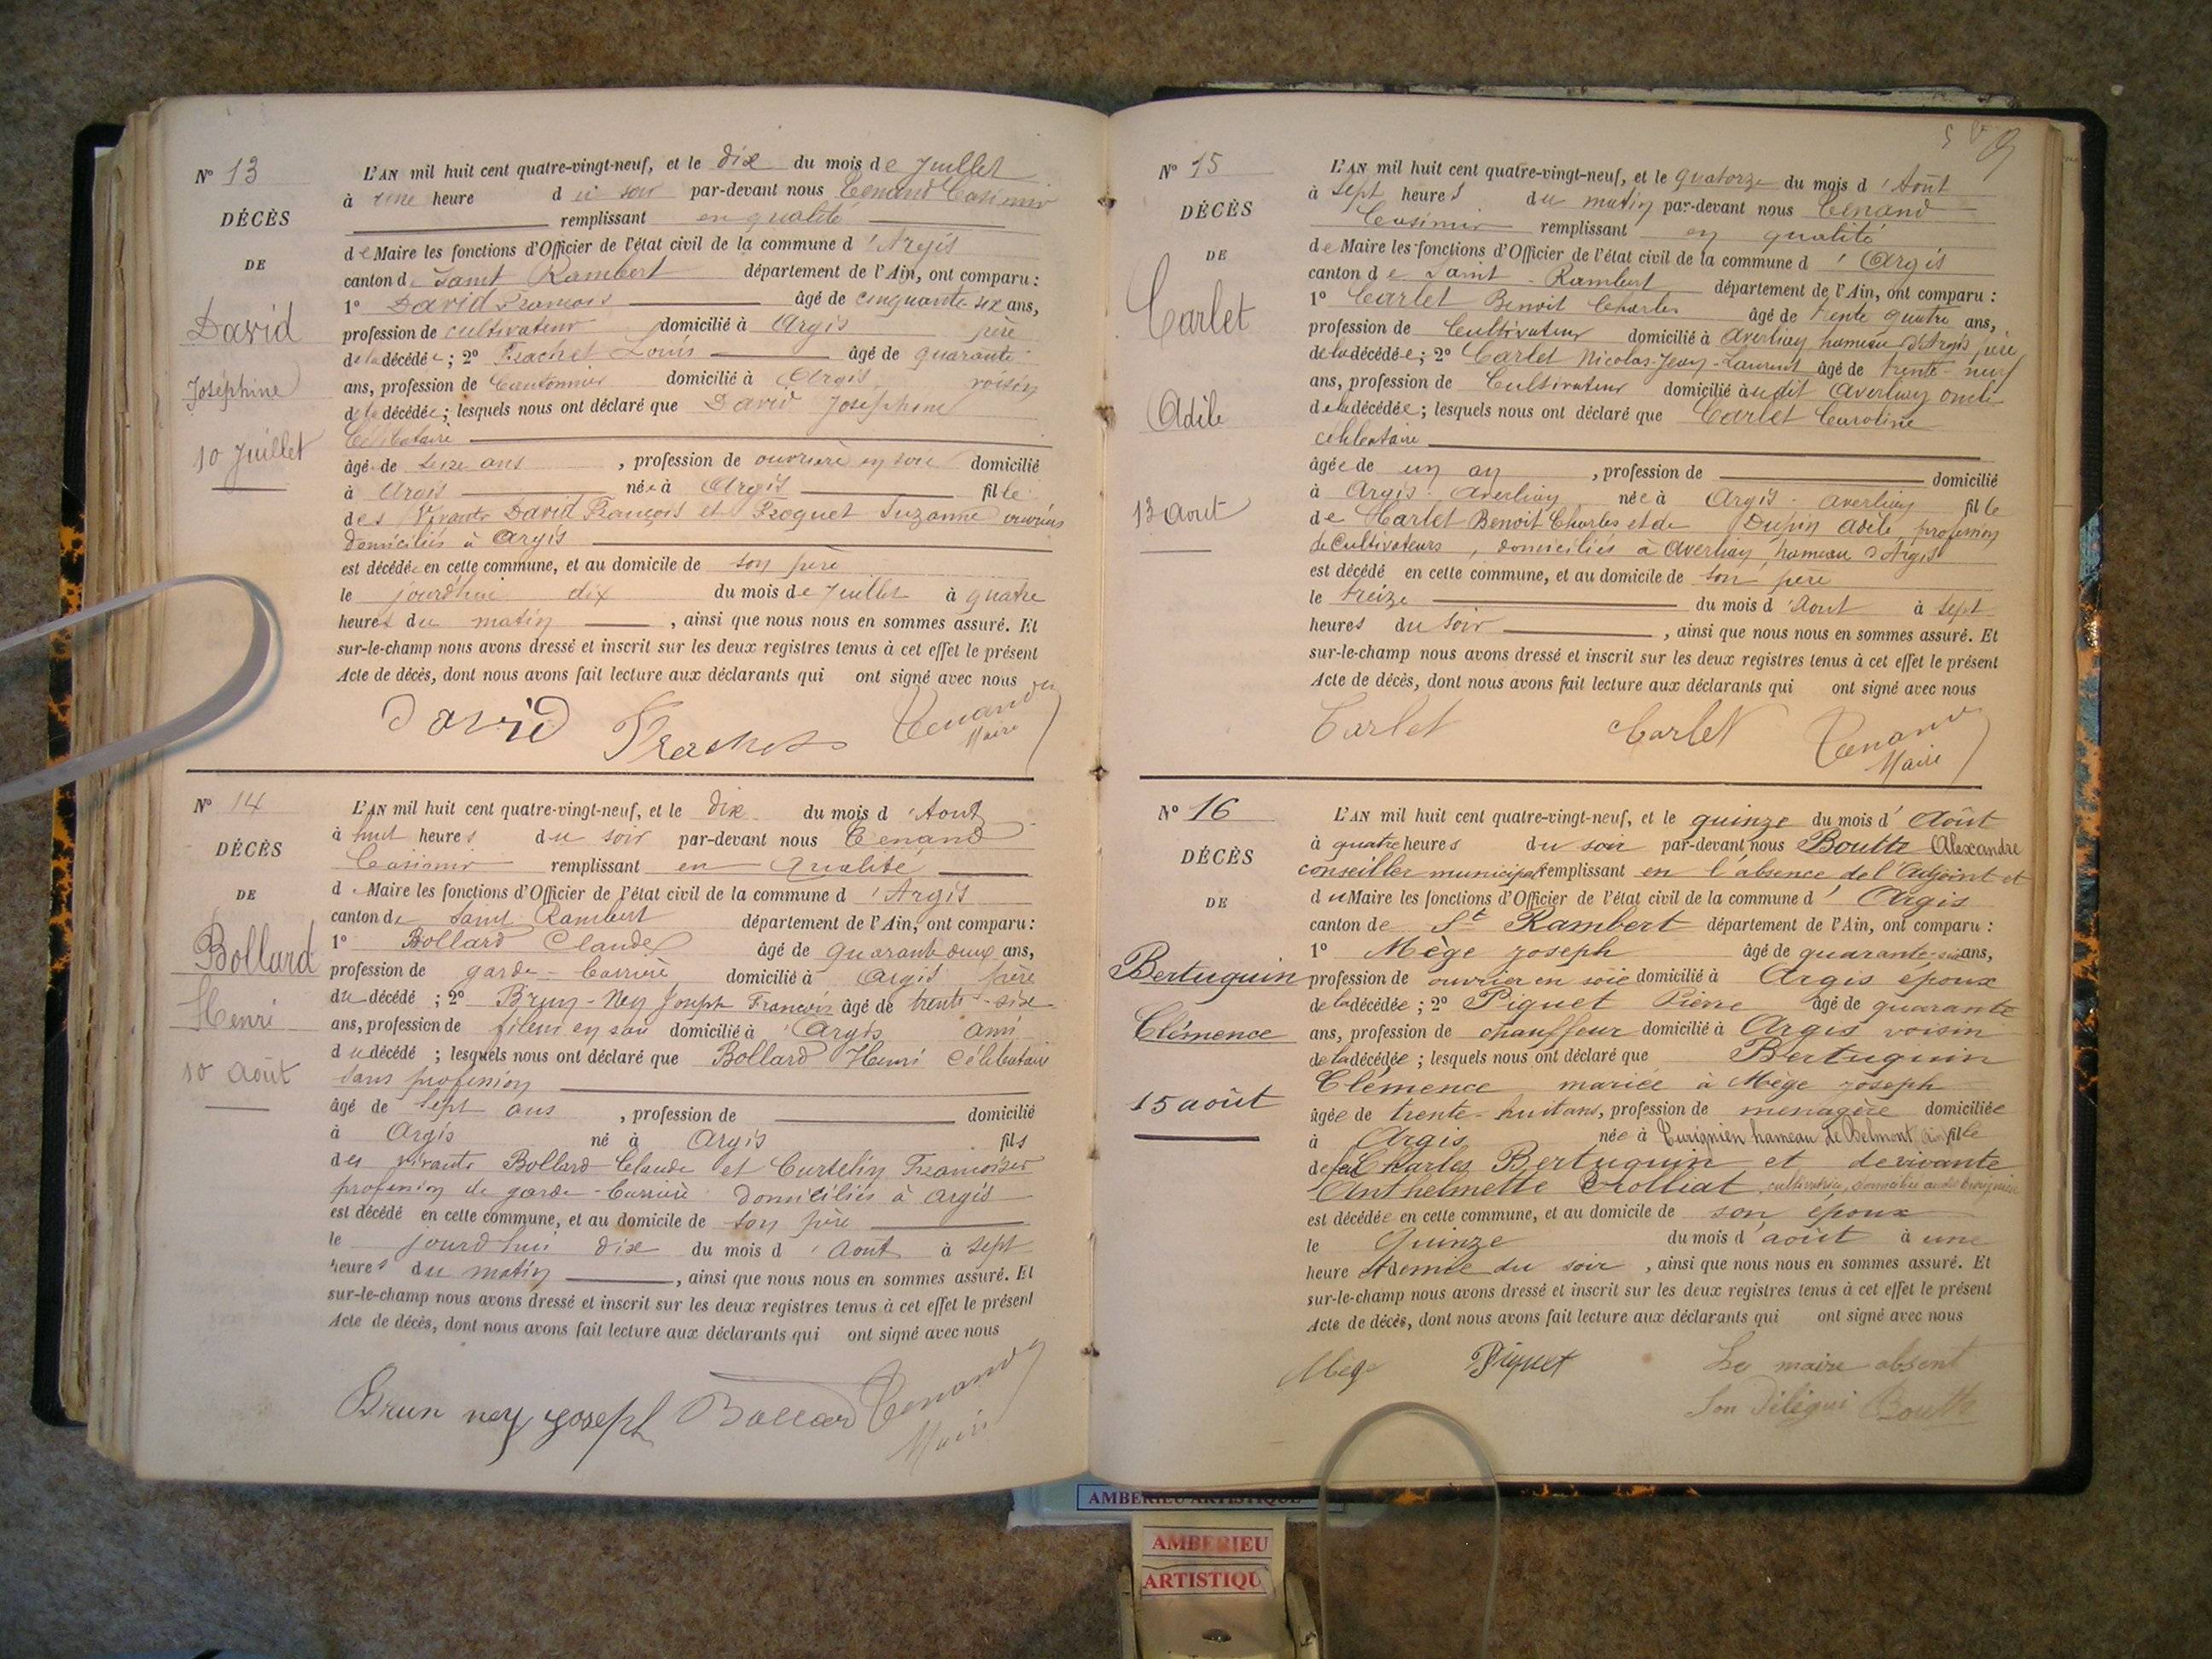 N° 13
DÉCÈS
DE
David
Joséphine
10 Juillet
L'AN mil huit cent quatre-vingt-neuf, et le dix du mois de Juillet
à une heure du soir par-devant nous Tenand Casimir
remplissant en qualité
de Maire les fonctions d'Officier de l'état civil de la commune d'Argis
canton de Saint Rambert département de l'Ain, ont comparu :
1° David François âgé de cinquante six ans,
profession de cultivateur domicilié à Argis père
de la décédée ; 2° Trachet Louis âgé de quarante
ans, profession de Cantonnier domicilié à Argis voisin
de la décédée ; lesquels nous ont déclaré que David Joséphine
Célibataire
âgé de seize ans , profession de ouvrière en soie domicilié
à Argis née à Argis fille
des vivants David François et Suzanne ouvriers
domiciliés à Argis
est décédée en cette commune, et au domicile de son père
le jourd'hui dix du mois de Juillet à quatre
heures du matin , ainsi que nous nous en sommes assuré. Et
sur-le-champ nous avons dressé et inscrit sur les deux registres tenus à cet effet le présent
Acte de décès, dont nous avons fait lecture aux déclarants qui ont signé avec nous
David Trachet Tenand
Maire
N° 14
DÉCÈS
DE
Bollard
Henri
10 Août
L'AN mil huit cent quatre-vingt-neuf, et le dix du mois d'Aout
à huit heures du soir par-devant nous Tenand
Casimir remplissant en qualité
de Maire les fonctions d'Officier de l'état civil de la commune d'Argis
canton de Saint Rambert département de l'Ain, ont comparu :
1° Bollard Claude âgé de quarante deux ans,
profession de garde-barrière domicilié à Argis père
du décédé ; 2° Brun-Ney Joseph François âgé de trente-six
ans, profession de fileur en soie domicilié à Argis ami
du décédé ; lesquels nous ont déclaré que Bollard Henri célibataire
sans profession
âgé de sept ans , profession de domicilié
à Argis né à Argis fils
des vivants Bollard Claude et Curtelin
profession de garde-barrière domiciliés à Argis
est décédé en cette commune, et au domicile de son père
le jourd'hui dix du mois d'Août à sept
heures du matin , ainsi que nous nous en sommes assuré. Et
sur-le-champ nous avons dressé et inscrit sur les deux registres tenus à cet effet le présent
Acte de décès, dont nous avons fait lecture aux déclarants qui ont signé avec nous
Brun ney joseph Bollard Tenand
Maire
N° 15
DÉCÈS
DE
Carlet
Adèle
13 Aout
L'AN mil huit cent quatre-vingt-neuf, et le quatorze du mois d'Août
à sept heures du matin par-devant nous Tenand
Casimir remplissant en qualité
de Maire les fonctions d'Officier de l'état civil de la commune d'Argis
canton de Saint-Rambert département de l'Ain, ont comparu :
1° Carlet Benoit Charles âgé de trente quatre ans,
profession de Cultivateur domicilié à Averliay hameau d'Argis père
de la décédée ; 2° Carlet Nicolas-Jean-Laurent âgé de trente-neuf
ans, profession de Cultivateur domicilié à Averliay oncle
de la décédée ; lesquels nous ont déclaré que Carlet Caroline
célibataire
âgée de un an , profession de domicilié
à Argis-Averliay née à Argis-Averliay fille
de Carlet Benoit Charles et de Dupin Adèle, profession
de Cultivateurs, domiciliés à Averliay, hameau d'Argis
est décédé en cette commune, et au domicile de son père
le treize du mois d'Aout à sept
heures du soir , ainsi que nous nous en sommes assuré. Et
sur-le-champ nous avons dressé et inscrit sur les deux registres tenus à cet effet le présent
Acte de décès, dont nous avons fait lecture aux déclarants qui ont signé avec nous
Carlet Carlet Tenand
Maire
N° 16
DÉCÈS
DE
Bertuguin
Clémence
15 août
L'AN mil huit cent quatre-vingt-neuf, et le quinze du mois d'Août
à quatre heures du soir par-devant nous Boutte Alexandre
conseiller municipal remplissant en l'absence de l'Adjoint et
du Maire les fonctions d'Officier de l'état civil de la commune d'Argis
canton de St Rambert département de l'Ain, ont comparu :
1° Mège joseph âgé de quarante-six ans,
profession de ouvrier en soie domicilié à Argis époux
de la décédée ; 2° Piquet Pierre âgé de quarante
ans, profession de chauffeur domicilié à Argis voisin
de la décédée ; lesquels nous ont déclaré que Bertuguin
Clémence mariée à Mège joseph
âgée de trente-huit ans, profession de ménagère domiciliée
à Argis née à Evrignien hameau de Belmont (Ain) fille
de feu Charles Bertuguin et de vivante
Anthelmette Trolliat cultivatrice, domiciliée
est décédée en cette commune, et au domicile de son époux
le Quinze du mois d'août à une
heure et demie du soir , ainsi que nous nous en sommes assuré. Et
sur-le-champ nous avons dressé et inscrit sur les deux registres tenus à cet effet le présent
Acte de décès, dont nous avons fait lecture aux déclarants qui ont signé avec nous
Mege Piquet Le maire absent
Son délégué Boutte
AMBERIEU ARTISTIQUE
AMBERIEU
ARTISTIQU